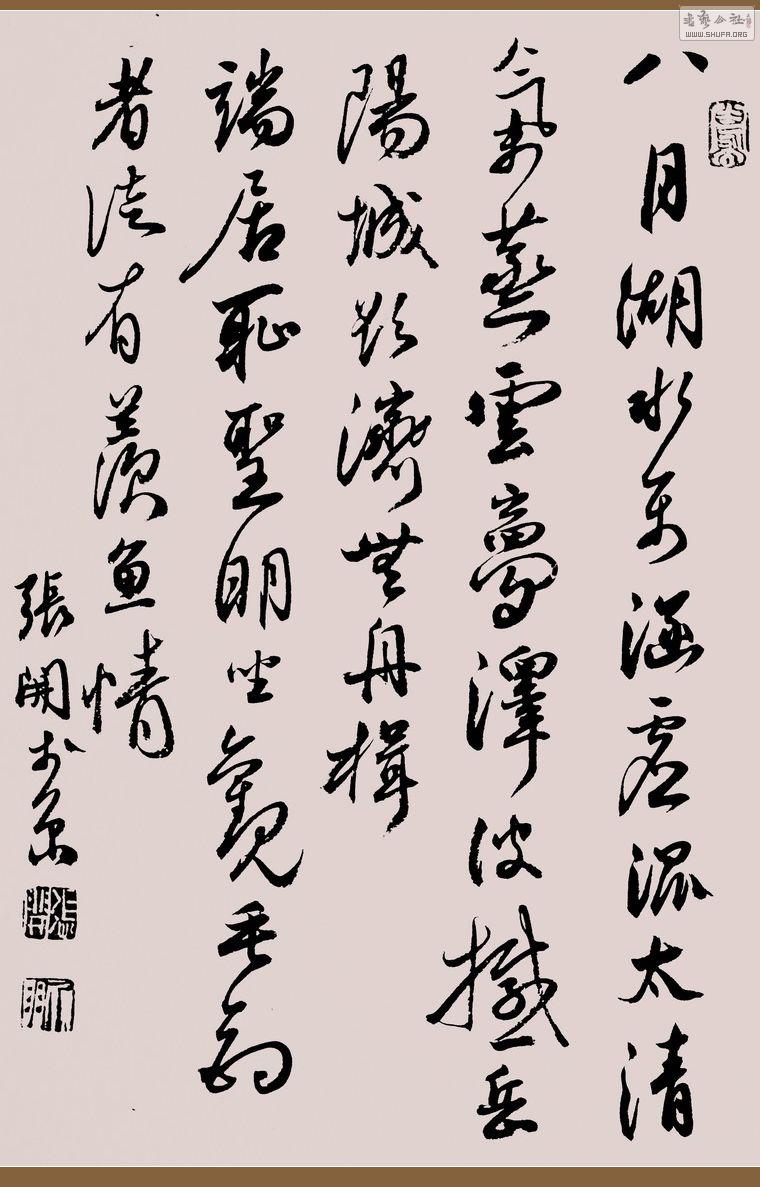 書藝公社
WWW.SHUFA.ORG
八月湖水平涵虛混太清
氣蒸雲夢澤波撼岳
陽城欲濟無舟楫
端居恥聖明坐觀垂釣
者徒有羨鱼情
張開於京